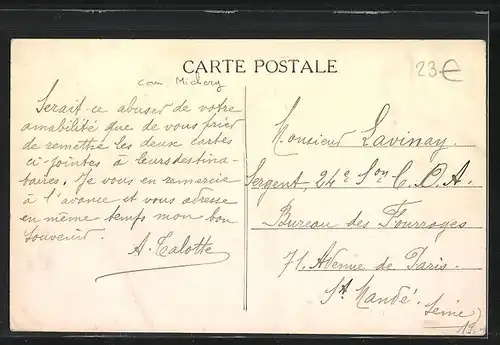 CARTE POSTALE
23€
com. Michery
Serait-ce abuser de votre
amabilité que de vous prier
de remettre les deux cartes
ci-jointes à leurs destina-
taires. Je vous en remercie
à l'avance et vous adresse
en même temps mon bon
souvenir.
A. Calotte
Monsieur Lavinay.
Sergent 24e Son C. O. A.
Bureau des Fourrages
71, Avenue de Paris.
St. Mandé.
Seine